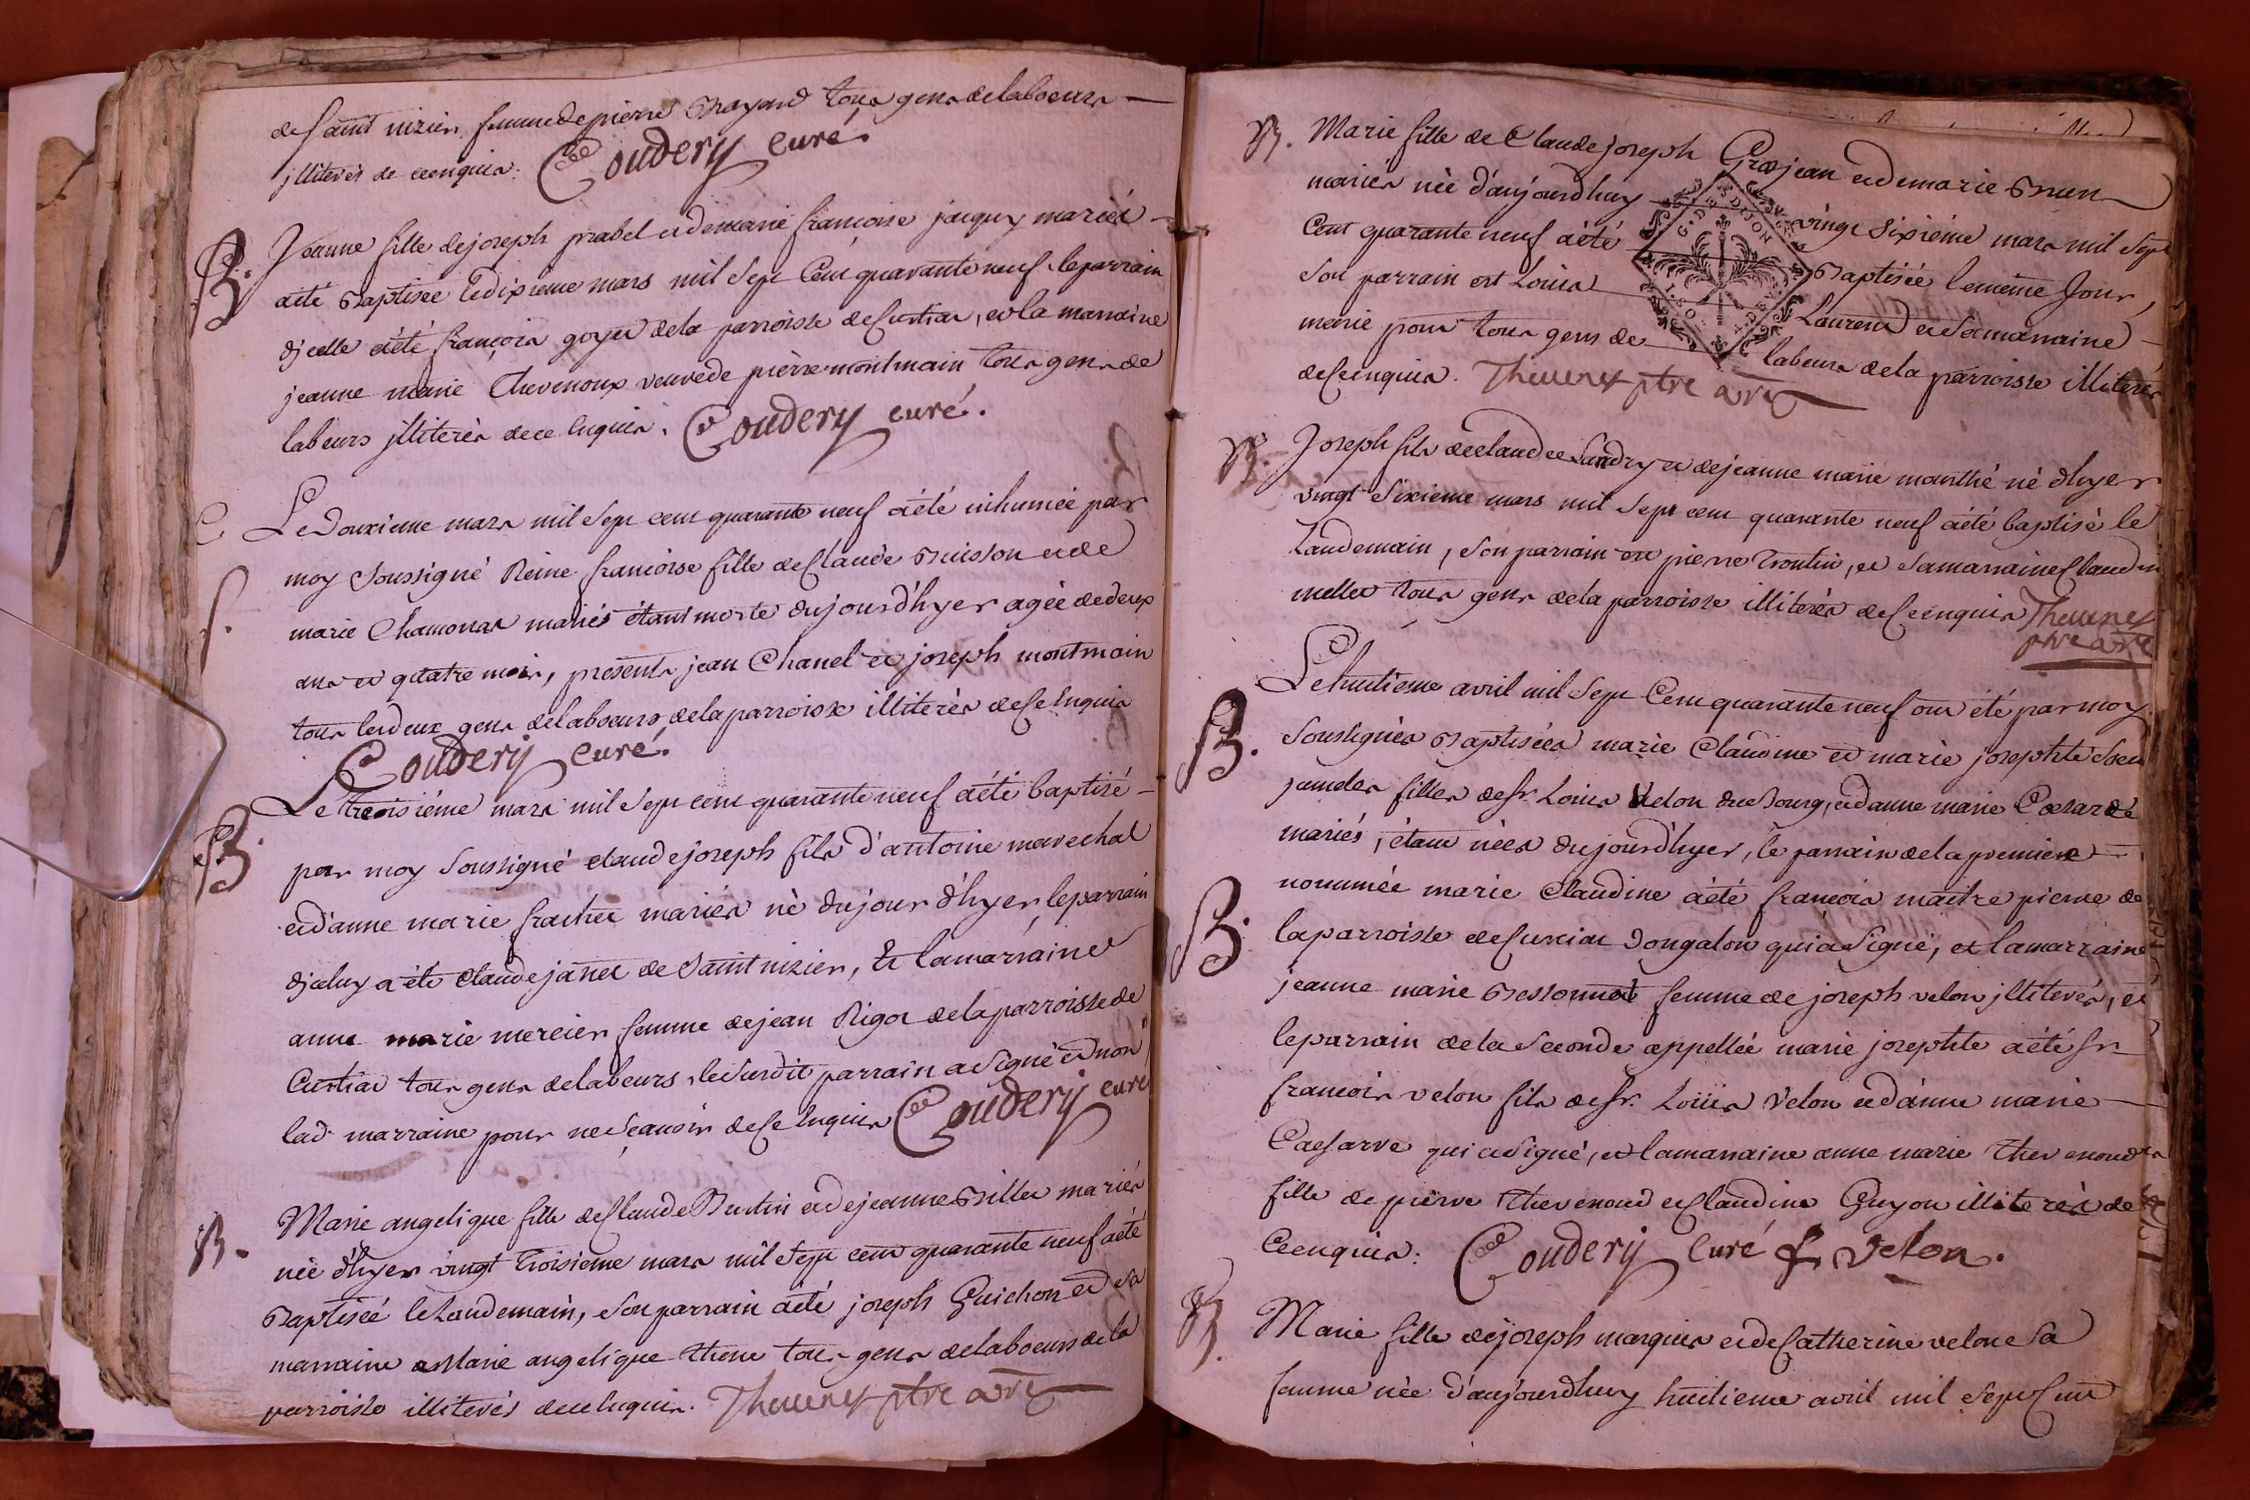 de Saint nizier femme de pierre Bayard tous gens de laboeurs
jlliterés de ce enquis. Coudery curé.
B. Jeanne fille de joseph prabel et de marie françoise jacquy mariés
a été Baptisée le dixieme mars mil sept Cent quarante neuf, le parrain
djcelle a été françois goyer de la parroisse de Curtiat, et la marraine
jeanne marie Thevenoux veuve de pièrre montmain tous gens de
labeurs jlliterés de ce Enquis. Coudery curé.
S. Le Douxieme mars mil sept cent quarante neuf a été inhumée par
moy Soussigné Reine françoise fille de Claude Buisson et de
marie Chamonar mariés étant morte du jour d'hyer agée de deux
ans et quatre mois, presents jean Chanel et joseph montmain
tous les deux gens de laboeurs de la parroisse illiterés de Ce Enquis
Coudery curé.
B. Le Treisiéme mars mil sept cent quarante neuf a été baptisé
par moy Soussigné claude joseph fils d'antoine marechal
et d'anne marie frachet mariés né du jour d'hyer le parrain
djceluy a été Claude janet de Saint nizier, et la marraine
anne marie mercier femme de jean Rigot de la parroisse de
Curtiat tous gens de labeurs, le Susdit parrain a Signé et non
lad. marraine pour ne Scavoir de Ce Enquis Coudery curé
B. Marie angelique fille de Claude Burtin et de jeanne Billet mariés
née d'hyer vingt Troisieme mars mil Sept cent quarante neuf a été
Baptisée le Landemain, Son parrain a été joseph Guichon et sa
marraine Marie angelique Thene tous gens de laboeurs de la
parroisse illiterés de ce Enquis. Thevenet ptre
B. Marie fille de Claude joseph Grosjean et de marie Brun
mariés née d'aujourdhuy vingt Sixiéme mars mil Sept
Cent quarante neuf a été Baptisée le méme Jour,
Son parrain est Louis Laurent et Sa marraine
marie pour tous gens de labeurs de la parroisse illiterés
de Ce enquis. Thevenet ptre
G. DE DIJON
B. Joseph fils de claude Landry et de jeanne marie monthé né d'hyer
vingt Sixieme mars mil Sept cent quarante neuf a été baptisé le
Landemain, Son parrain est pierre Troutin, et Sa marraine Claudine
mellet tous gens de la parroisse illiterés de Ce enquis Thevenet
ptre
B. Le huitieme avril mil Sept Cent quarante neuf ont été par moy
Soussignés Baptisées marie Claudine et marie josephte Soeurs
jumeles filles de Sr. Louis Velon du Bourg, et d'anne marie Coesarde
mariés, étant nées du jour d'hyer, le parrain de la premiere
B. nommée marie Claudine a été françois maitre pierre de
la parroisse de Curciat Dongalon qui a Signé, et la marraine
jeanne marie Bessonnat femme de joseph velon jlliterés, et
le parrain de la Seconde appellée marie josephte a été Sr.
francois velon fils de Sr. Louis Velon et d'anne marie
Caesarve qui a Signé, et la marraine anne marie Thevenoud
fille de piérre Thevenoud et Claudine Guyon illiterés de
Ce enquis. Coudery Curé f. Velon.
B. Marie fille de joseph marquis et de Catherine velon Sa
femme née d'aujourdhuy huitieme avril mil Sept Cent